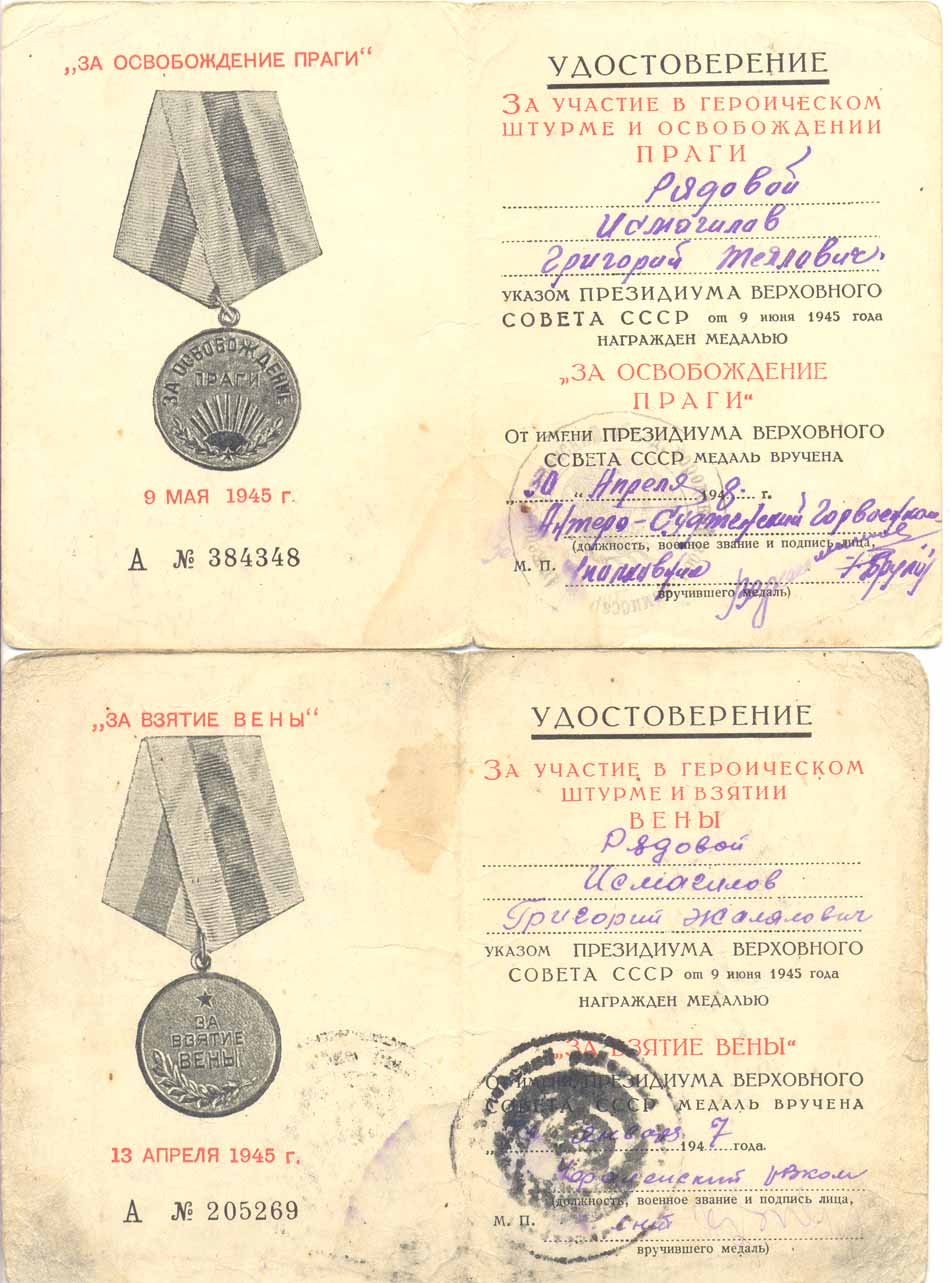 „ЗА ОСВОБОЖДЕНИЕ ПРАГИ“
ЗА ОСВОБОЖДЕНИЕ
ПРАГИ
9 МАЯ 1945 г.
А № 384348
УДОСТОВЕРЕНИЕ
ЗА УЧАСТИЕ В ГЕРОИЧЕСКОМ
ШТУРМЕ И ОСВОБОЖДЕНИИ
ПРАГИ
Рядовой
Исмагилов
Григорий
УКАЗОМ ПРЕЗИДИУМА ВЕРХОВНОГО
СОВЕТА СССР от 9 июня 1945 года
НАГРАЖДЕН МЕДАЛЬЮ
„ЗА ОСВОБОЖДЕНИЕ
ПРАГИ“
ОТ ИМЕНИ ПРЕЗИДИУМА ВЕРХОВНОГО
СОВЕТА СССР МЕДАЛЬ ВРУЧЕНА
„30“ Апреля 1948. г.
Анжеро-Судженский Горвоенком
(должность, военное звание и подпись лица,
М. П.
вручившего медаль)
„ЗА ВЗЯТИЕ ВЕНЫ“
ЗА
ВЗЯТИЕ
ВЕНЫ
13 АПРЕЛЯ 1945 г.
А № 205269
УДОСТОВЕРЕНИЕ
ЗА УЧАСТИЕ В ГЕРОИЧЕСКОМ
ШТУРМЕ И ВЗЯТИИ
ВЕНЫ
Рядовой
Исмагилов
Григорий Жалялович
УКАЗОМ ПРЕЗИДИУМА ВЕРХОВНОГО
СОВЕТА СССР от 9 июня 1945 года
НАГРАЖДЕН МЕДАЛЬЮ
„ЗА ВЗЯТИЕ ВЕНЫ“
ОТ ИМЕНИ ПРЕЗИДИУМА ВЕРХОВНОГО
СОВЕТА СССР МЕДАЛЬ ВРУЧЕНА
января 1947 года.
(должность, военное звание и подпись лица,
М. П.
вручившего медаль)